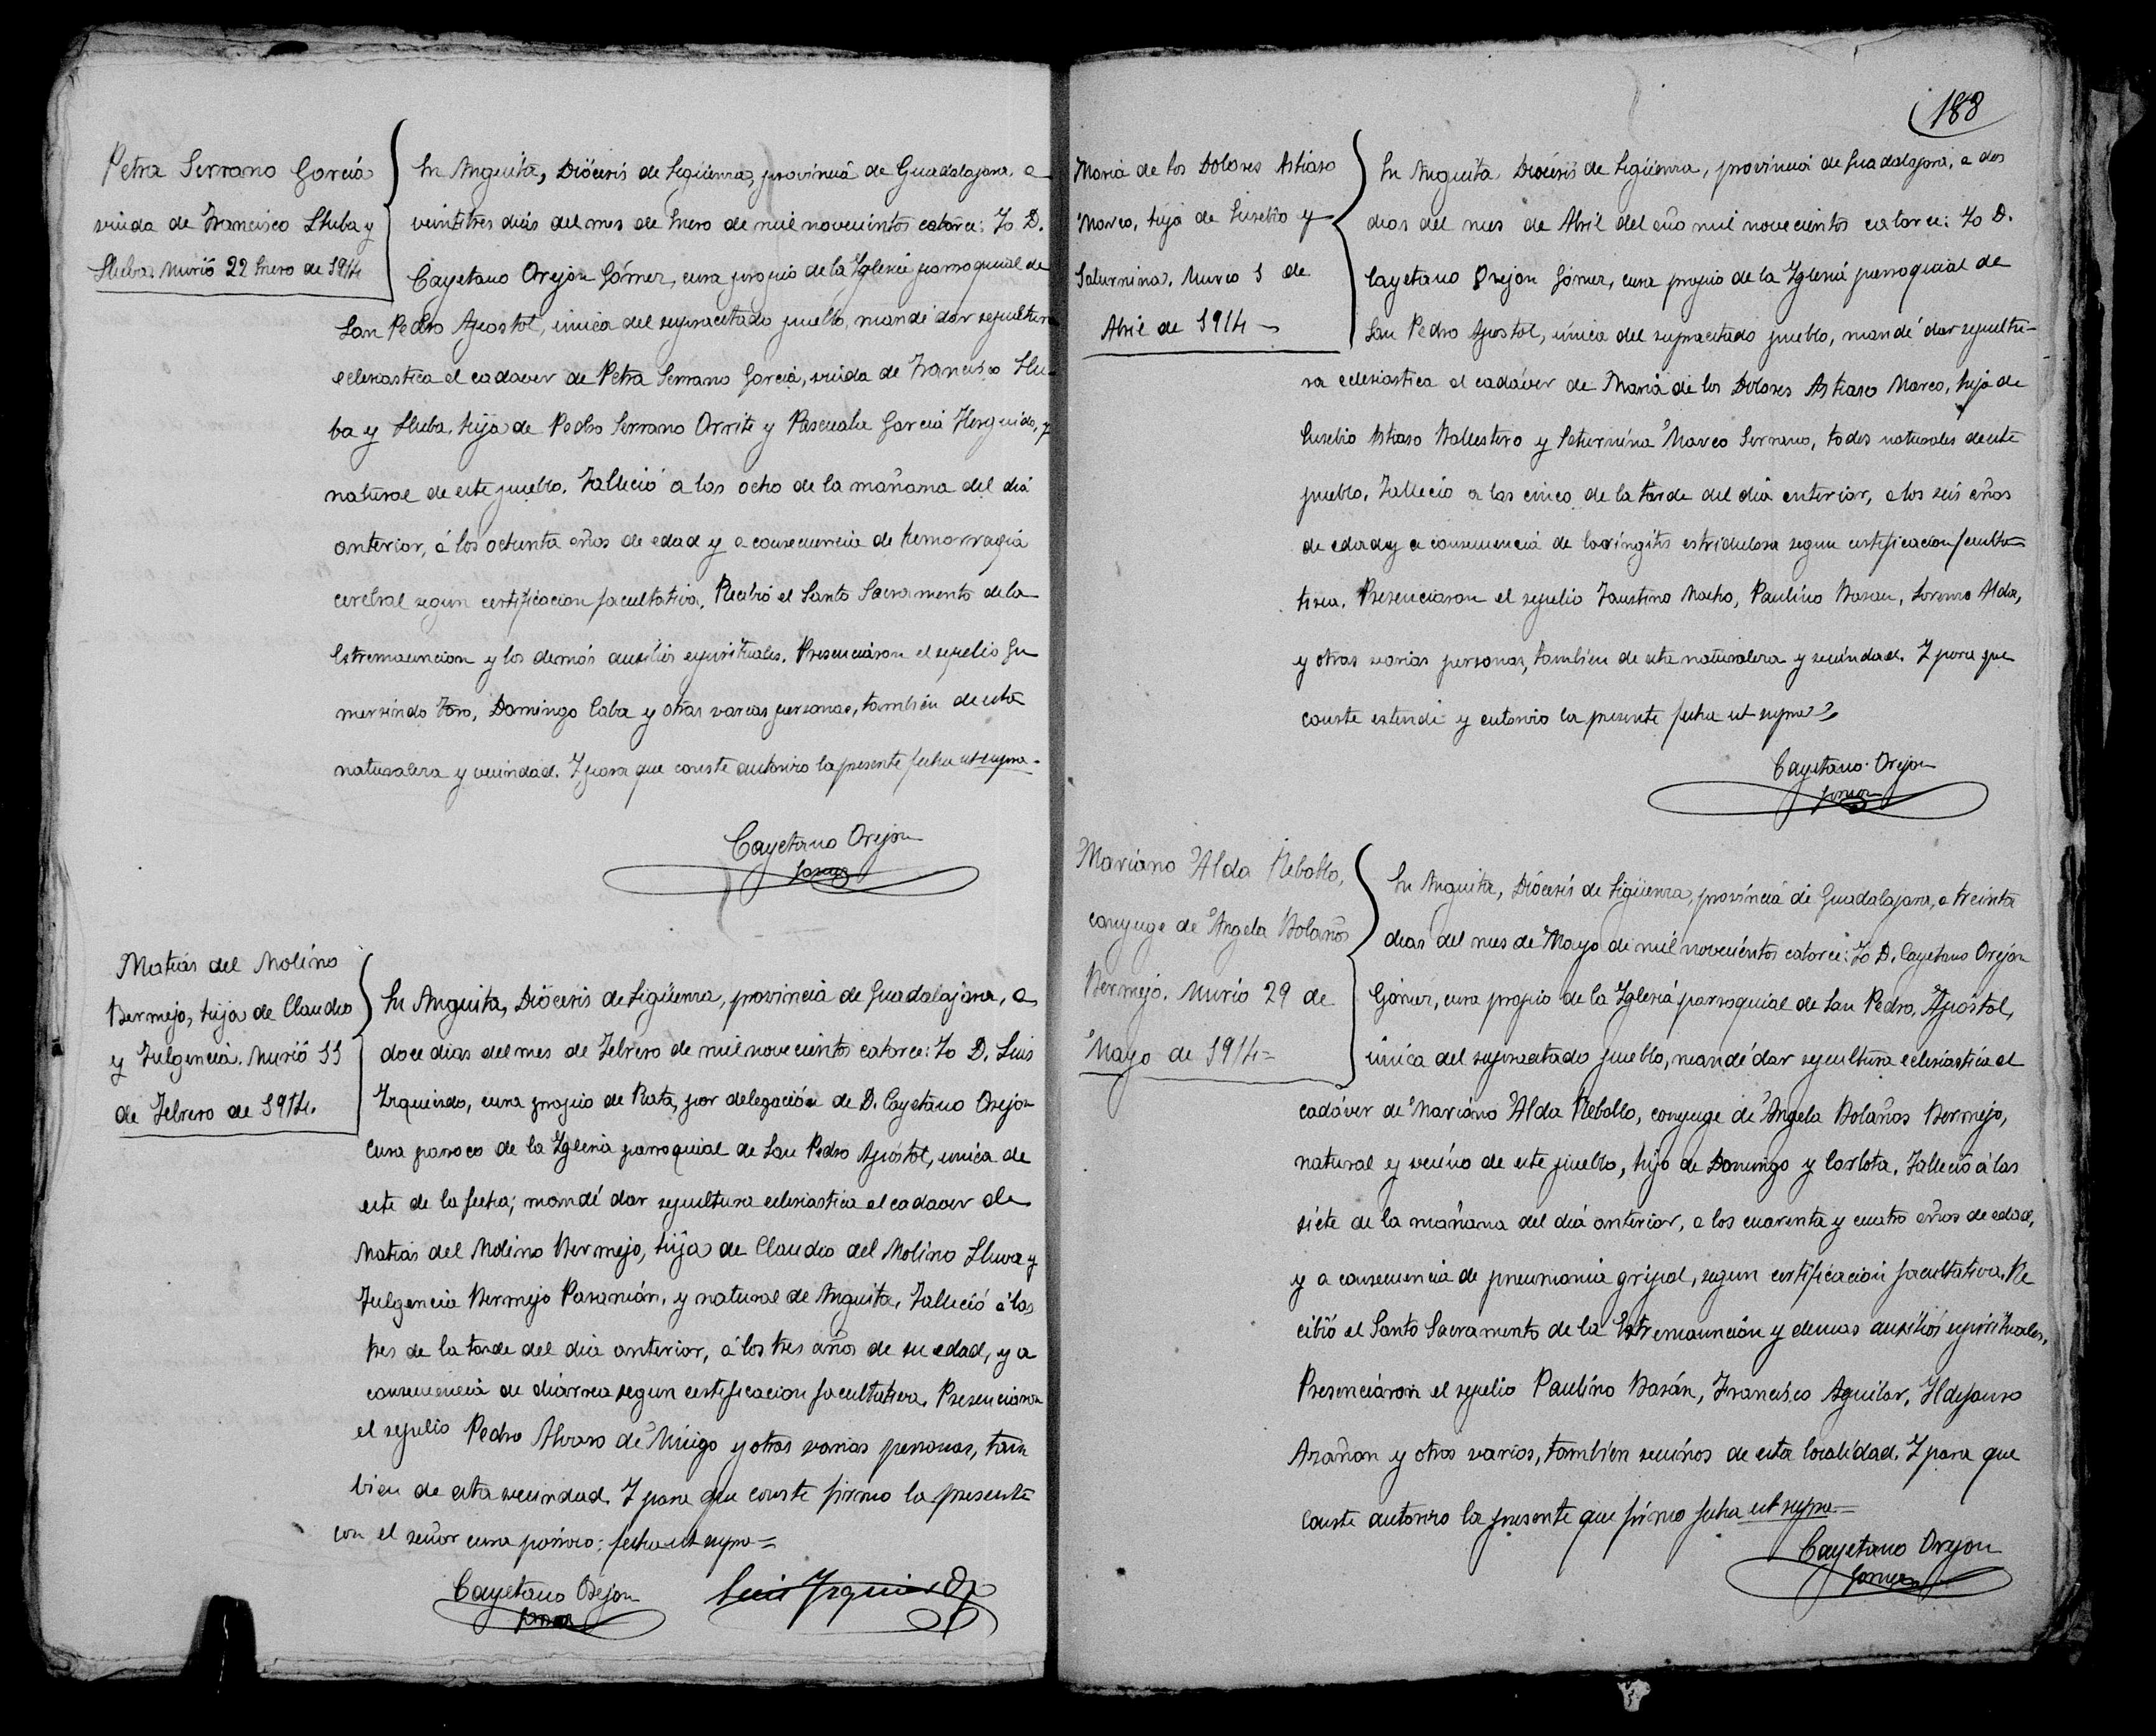 Petra Serrano García
viuda de Francisco Lluba y
Lluba. Murió 22 Enero de 1914
En Anguita, Diócesis de Sigüenza, provincia de Guadalajara, a
veintitres dias del mes de Enero de mil novecientos catorce: Yo D.
Cayetano Orejon Gómez, cura propio de la Iglesia parroquial de
San Pedro Apostol, única del supracitado pueblo, mandé dar sepultura
eclesiastica al cadaver de Petra Serrano García, viuda de Francisco Llu-
ba y Lluba, hija de Pedro Serrano Orrite y Pascuala García Herguido, y
natural de este pueblo. Falleció a las ocho de la mañana del día
anterior, á los ochenta años de edad y a consecuencia de hemorragia
cerebral segun certificacion facultativa. Recibió el Santo Sacramento de la
Estremauncion y los demás ausilios espirituales. Presenciaron el sepelio Gu
mersindo Toro, Domingo Caba y otras varias personas, tambien de esta
naturaleza y vecindad. Y para que conste autorizo la presente fecha ut supra.
Cayetano Orejon
Gomez
Matias del Molino
Bermejo, hija de Claudio
y Fulgencia. Murió 11
de Febrero de 1914.
En Anguita, Diócesis de Sigüenza, provincia de Guadalajara, a
doce dias del mes de Febrero de mil novecientos catorce: Yo D. Luis
Izquierdo, cura propio de Rata, por delegación de D. Cayetano Orejon
Cura parroco de la Iglesia parroquial de San Pedro Apóstol, unica de
este de la fecha; mandé dar sepultura eclesiastica al cadaver de
Matias del Molino Bermejo, hija de Claudio del Molino Lluva y
Fulgencia Bermejo Pasamón, y natural de Anguita. Falleció á las
tres de la tarde del dia anterior, á los tres años de su edad, y a
consecuencia de diarrea segun certificacion facultativa. Presenciaron
el sepelio Pedro Alvaro de Mingo y otras varias personas, tam
bien de esta vecindad. Y para que conste firmo la presente
con el señor cura párroco: fecha ut supra=
Cayetano Orejon
Gomez
Luis Izquierdo
188
María de los Dolores Astiaso
Marco, hija de Eusebio y
Saturnina. Murco 1 de
Abril de 1914
En Anguita Diócesis de Sigüenza, provincia de Guadalajara, a dos
dias del mes de Abril del año mil novecientos catorce: Yo D.
Cayetano Orejon Gómez, cura propio de la Iglesia parroquial de
San Pedro Apostol, única del supracitado pueblo, mandé dar sepultu-
ra eclesiastica al cadáver de María de los Dolores Astiaso Marco, hija de
Eusebio Astiaso Ballestero y Saturnina Marco Serrano, todos naturales de este
pueblo. Fallecio a las cinco de la tarde del dia anterior, a los seis años
de edad y a consecuencia de laringitis estridulosa segun certificacion faculta
tiva. Presenciaron el sepelio Faustino Macho, Paulino Basan, Lorenzo Alda,
y otras varias personas, tambien de esta naturaleza y vecindad. Y para que
conste estendi y autorizo la presente fecha ut supra
Cayetano Orejon
Gomez
Mariano Alda Rebollo,
conyuge de Angela Bolaños
Bermejo. Murio 29 de
Mayo de 1914=
En Anguita, Diócesis de Sigüenza, provincia de Guadalajara, a treinta
dias del mes de Mayo de mil novecientos catorce: Yo D. Cayetano Orejón
Gómez, cura propio de la Iglesia parroquial de San Pedro, Apóstol,
única del supracitado pueblo, mandé dar sepultura eclesiastica al
cadáver de Mariano Alda Rebollo, conyuge de Angela Bolaños Bermejo,
natural y vecino de este pueblo, hijo de Domingo y Carlota. Falleció á las
siete de la mañana del día anterior, a los cuarenta y cuatro años de edad,
y a consecuencia de pneumonia gripal, segun certificación facultativa. Re
cibió el Santo Sacramento de la Estremaunción y demas ausilios espirituales.
Presenciaron el sepelio Paulino Basán, Francisco Aguilar, Ildefonso
Arañon y otros varios, tambien vecinos de esta localidad. Y para que
conste autorizo la presente que firmo fecha ut supra=
Cayetano Orejon
Gomez